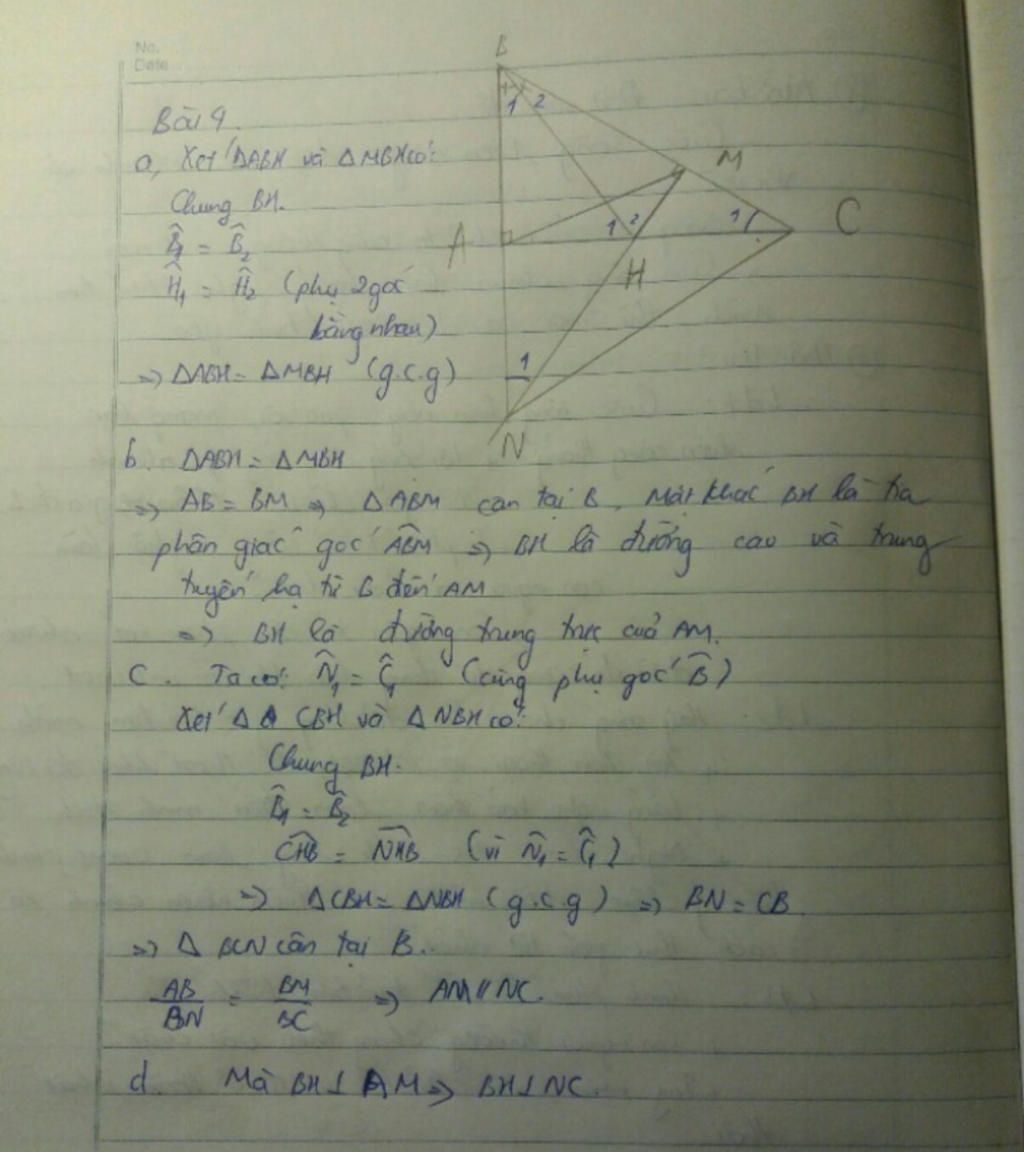 No.
Date
Bài 4.
a, Xét ΔABH và ΔMBH có:
Chung BH.
B̂₁ = B̂₂
Ĥ₁ = Ĥ₂ (phụ 2 góc
bằng nhau)
=> ΔABH = ΔMBH (g.c.g)
B
1 2
M
A
1 2
1
C
H
1
N
b. ΔABH = ΔMBH
=> AB = BM => ΔABM cân tại B. Mặt khác BH là tia
phân giác góc ABM => BH là đường cao và trung
tuyến hạ từ B đến AM
=> BH là đường trung trực của AM.
C. Ta có: N̂₁ = Ĉ₁ (cùng phụ góc B̂)
Xét Δ CBH và ΔNBH có:
Chung BH.
B̂₁ = B̂₂
CHB = NHB (vì N̂₁ = Ĉ₁)
=> ΔCBH = ΔNBH (g.c.g) => BN = CB.
=> Δ BCN cân tại B.
AB/BN = BM/BC => AM // NC.
d. Mà BH ⊥ AM => BH ⊥ NC.